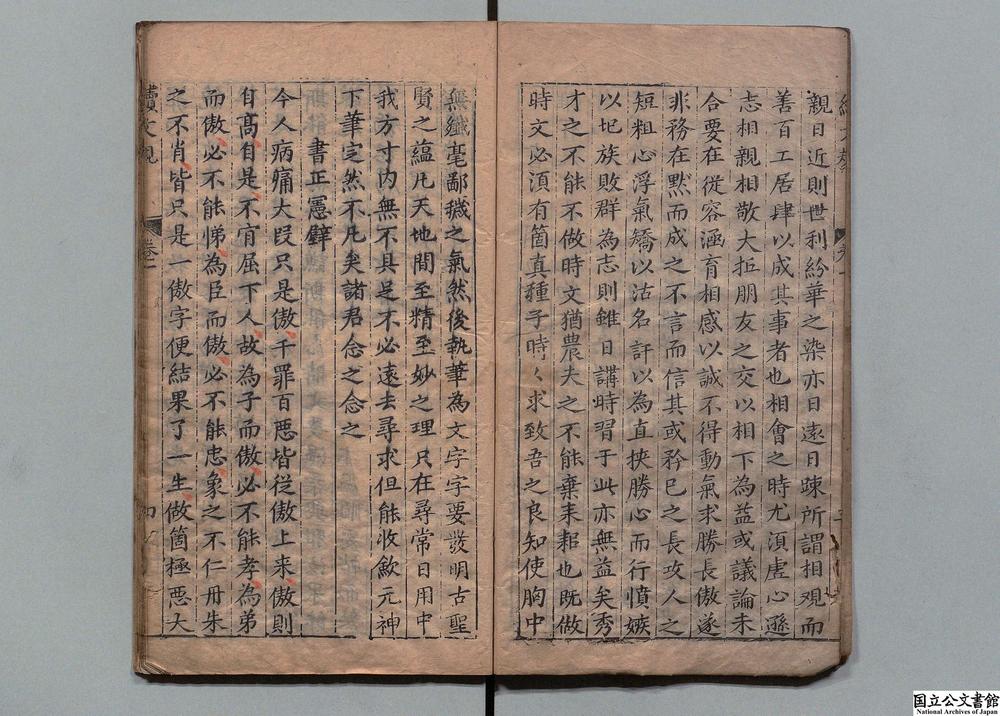 親日近則世利紛華之染亦日遠日踈所謂相觀而
善百工居肆以成其事者也相會之時尤湏虚心遜
志相親相敬大拒朋友之交以相下為益或議論未
合要在從容涵育相感以誠不得動氣求勝長傲遂
非務在默而成之不言而信其或矜已之長攻人之
短粗心浮氣矯以沽名訐以為直挾勝心而行憤嫉
以圯族敗群為志則雖日講時習于此亦無益矣秀
才之不能不做時文猶農夫之不能棄耒耜也既做
時文必湏有箇真種子時々求致吾之良知使胸中
無纖毫鄙穢之氣然後執筆為文字字要發明古聖
賢之蘊凡天地間至精至妙之理只在尋常日用中
我方寸内無不具足不必遠去尋求但能收歛元神
下筆定然不凡矣諸君念之念之
書正憲辥
今人病痛大叚只是傲千罪百惡皆從傲上来傲則
自高自是不肯屈下人故為子而傲必不能孝為弟
而傲必不能悌為臣而傲必不能忠象之不仁丹朱
之不肖皆只是一傲字便結果了一生做箇極惡大
卷一
国立公文書館
National Archives of Japan